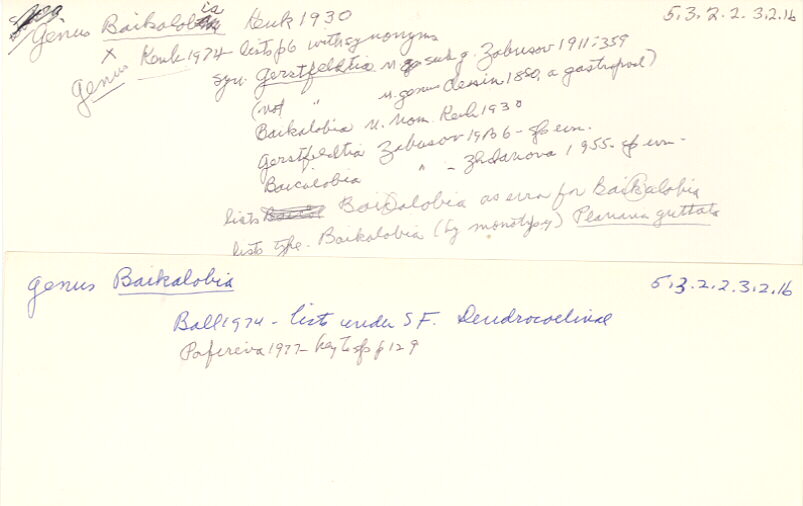 Genus Baikalobia Kenk 1930 5.3.2.2.3.2.16
Genus x Kenk 1974 - lists p6 with synonyms
syn. Gerstfeldtia n. subg. Zabusov 1911:359
(not " n. genus 1850, a gastropod)
Baikalobia n. nom. Kenk 1930
Gerstfeldtia Zabusov 1936 -
Baicalobia " - Zhdanova 1955 -
lists Baicalobia as error for baikalobia
lists type. Baikalobia (by monotypy) Planaria guttata
genus Baikalobia 5.3.2.2.3.2.16
Ball 1974 - lists under SF. Dendrocoelinae
Porfireva 1977 - key to sp p 129